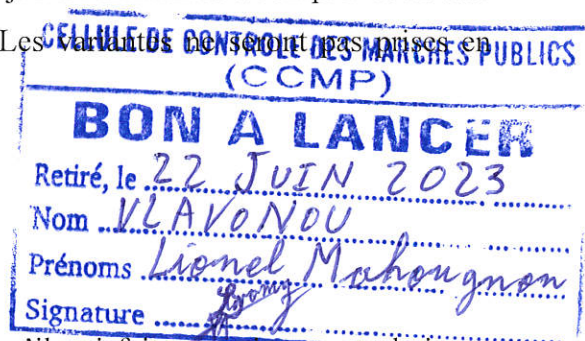 Les variantes ne seront pas prises en
CELLULE DE CONTROLE DES MARCHES PUBLICS
(CCMP)
BON A LANCER
Retiré, le 22 JUIN 2023
Nom VLAVONOU
Prénoms Lionel Mahougnon
Signature